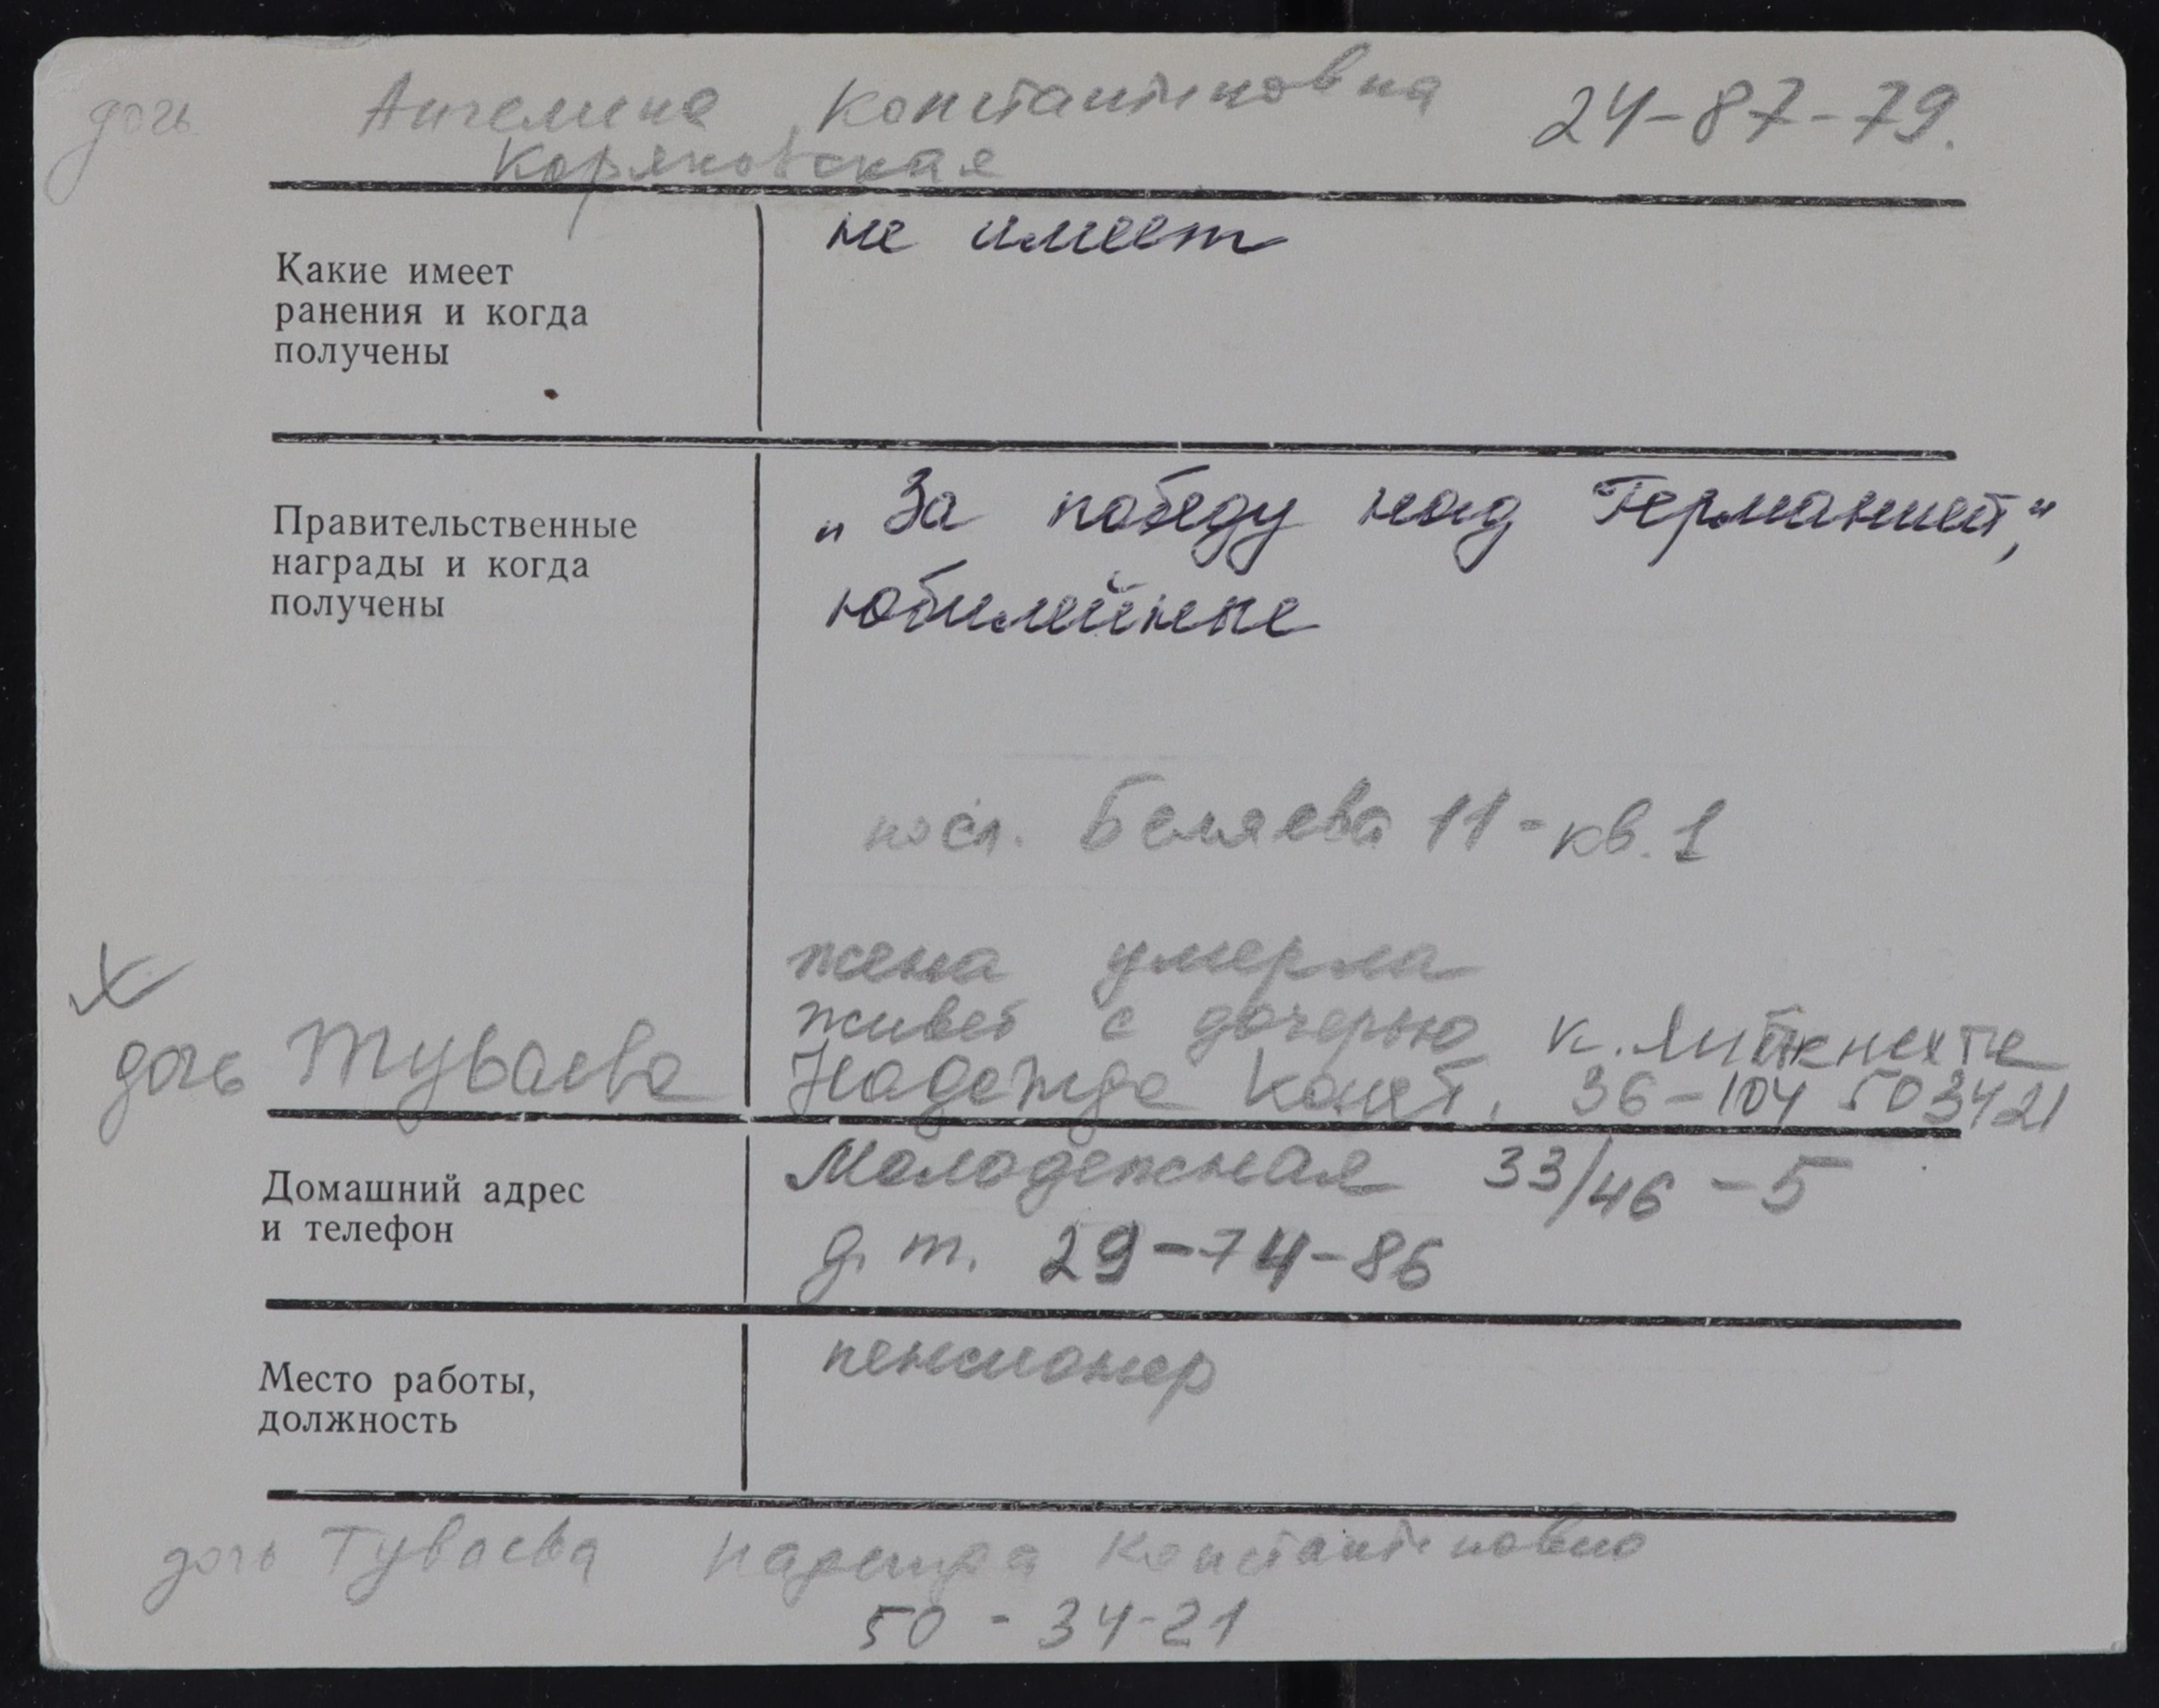 дочь Ангелина Константиновна 24-87-79.
Коряковская
Какие имеет
ранения и когда
получены
не имеет
Правительственные
награды и когда
получены
„За победу над Германией,“
юбилейные
пос. Беляева 11-кв.1
жена умерла
живет с дочерью К. Либкнехта
дочь Туваева Надежда Конст. 36-104 503421
Домашний адрес
и телефон
Молодежная 33/46-5
д.т. 29-74-86
Место работы,
должность
пенсионер
дочь Туваева Надежда Константиновна
50-34-21